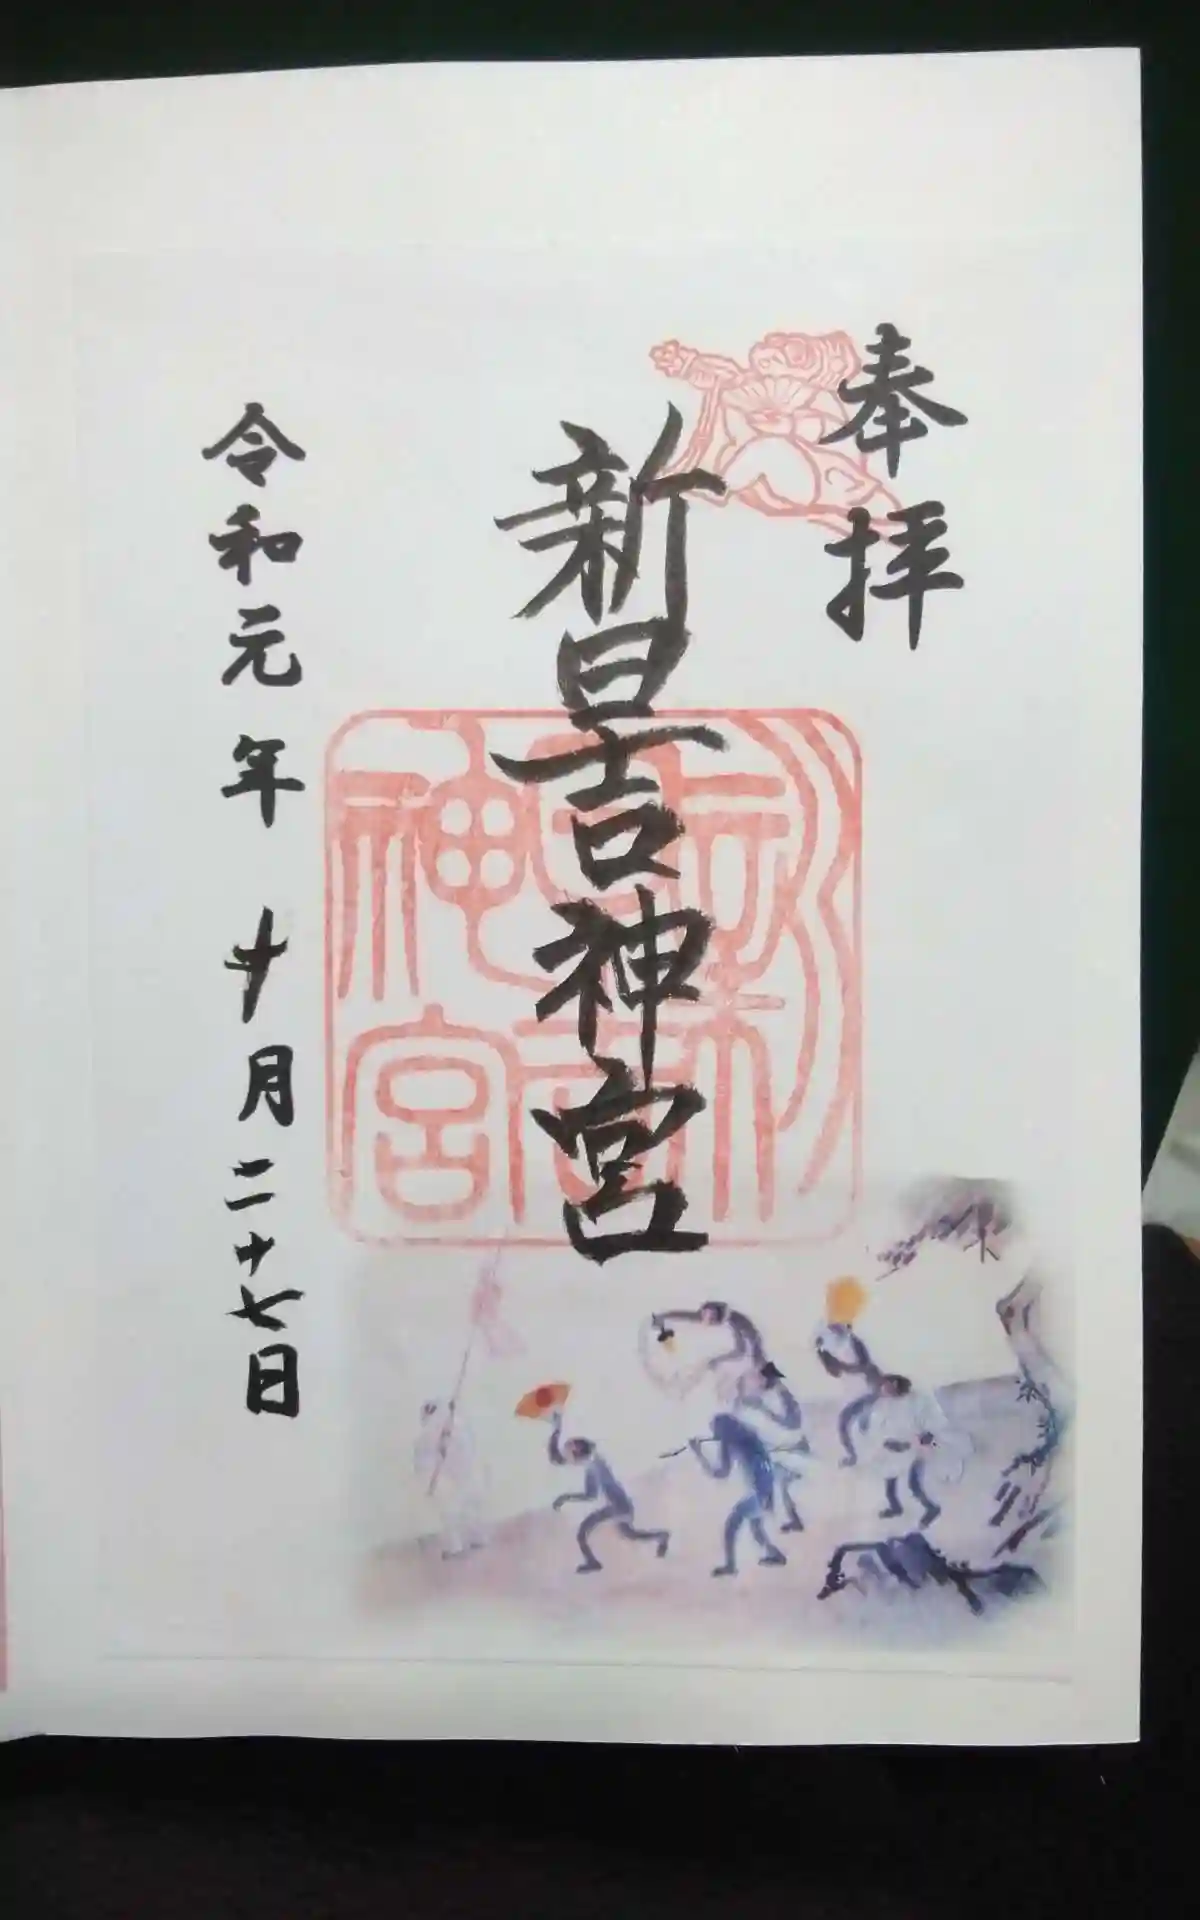 奉拝
新日吉神宮
新日吉神宮
令和元年十月二十七日